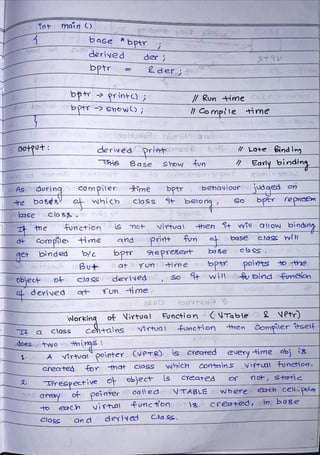 int main ()
{ base *bptr ;
derived der ;
bptr = &der ;
bptr → print() ; // Run time
bptr → show() ; // Compile time
}
output : derived print // Late Binding
This Base show fun // Early binding
As during compiler time bptr behaviour judged on
the bases of which class it belong, so bptr represent
base class.
If the function is not virtual then it will allow binding
at compile time and print fun of base class will
get binded b/c bptr represent base class.
But at run time bptr points to the
object of class derived, so it will bind function
of derived at run time.
Working of Virtual Function (VTable & VPtr)
If a class contains virtual function then compiler itself
does two things :
1. A virtual pointer (VPTR) is created every time obj is
created for that class which contains virtual function.
2. Irrespective of object is created or not, static
array of pointer called VTABLE where each cell points
to each virtual function is created, in base
class and derived class.